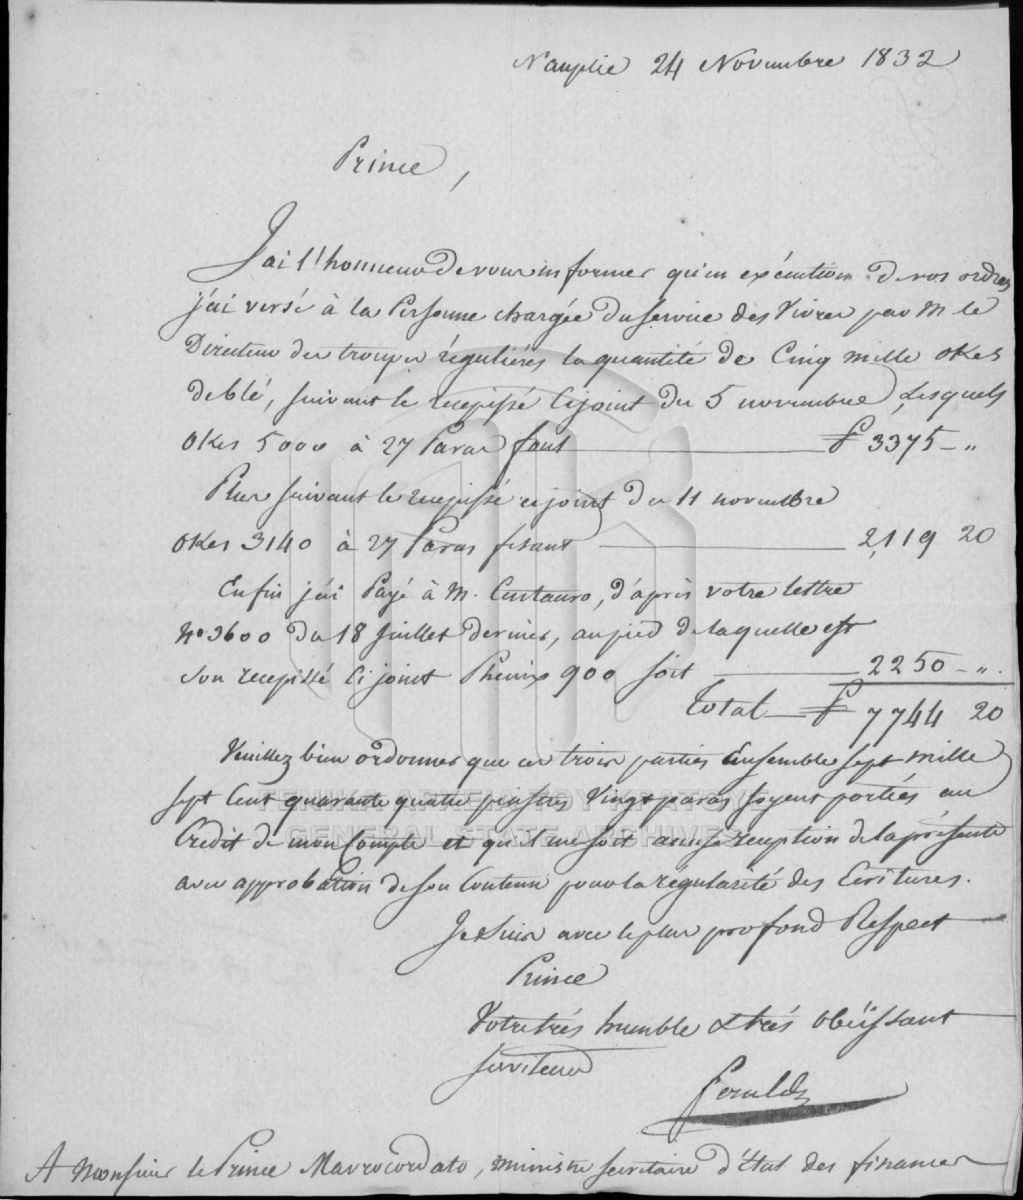 Nauplie 24 Novembre 1832
Prince,
J'ai l'honneur de vous informer qu'en exécution de vos ordres
j'ai versé à la Personne chargée du service des Vivres par M. le
Directeur des troupes régulières la quantité de Cinq mille okes
de blé, suivant le recepissé ci joint du 5 novembre, Lesquels
Okes 5000 à 27 Paras font ₣ 3375 - "
Plus suivant le recepissé ci joint du 11 novembre
Okes 3140 à 27 Paras fesant 2,119 20
Enfin j'ai Payé à M. Centauro, d'après votre lettre
N° 3600 du 18 Juillet dernier, au pied de laquelle est
son recepissé ci joint Phenix 900 soit 2250 - "
Total ₣ 7744 20
Veuillez bien ordonner que ces trois parties Ensemble sept mille
sept Cent quarante quatre piastres Vingt paras soyent portées au
Crédit de mon Compte et qu'il me soit accusé reception de la présente
avec approbation de son Contenu pour la régularité des Ecritures.
Je suis avec le plus profond Respect
Prince
Votre très humble & très obéissant
serviteur
A Monsieur le Prince Mavrocordato, ministre secrétaire d'Etat des finances
ΓΕΝΙΚΑ ΑΡΧΕΙΑ ΤΟΥ ΚΡΑΤΟΥΣ
GENERAL STATE ARCHIVES